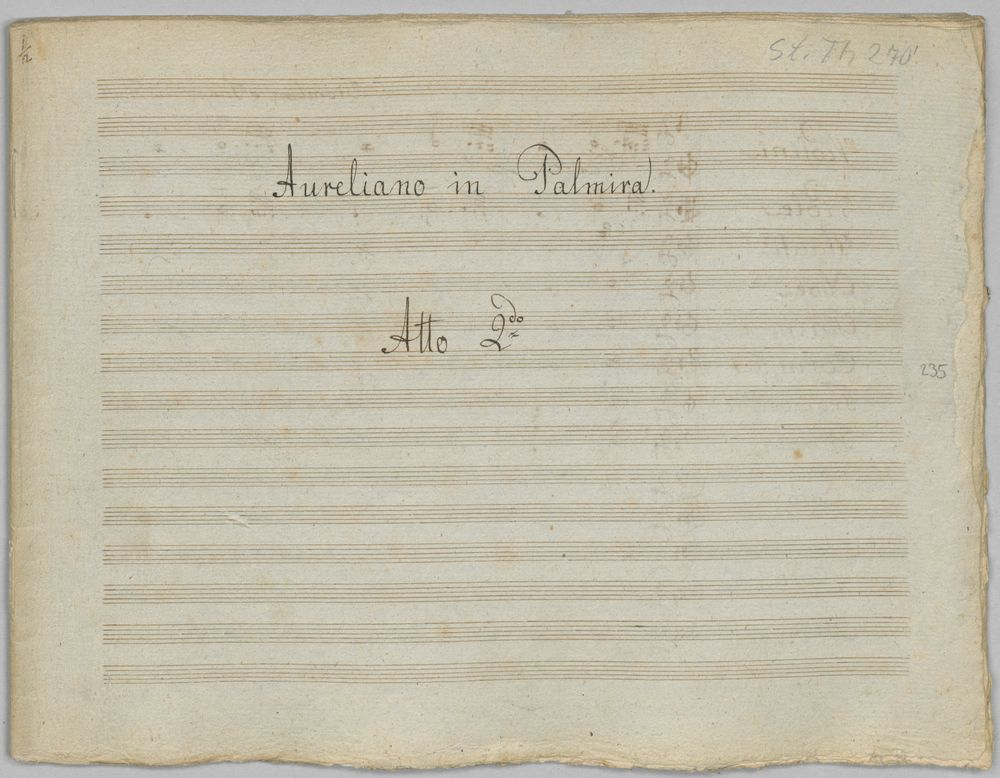 1/2
St. Th 270!
Aureliano in Palmira.
Atto 2do
235